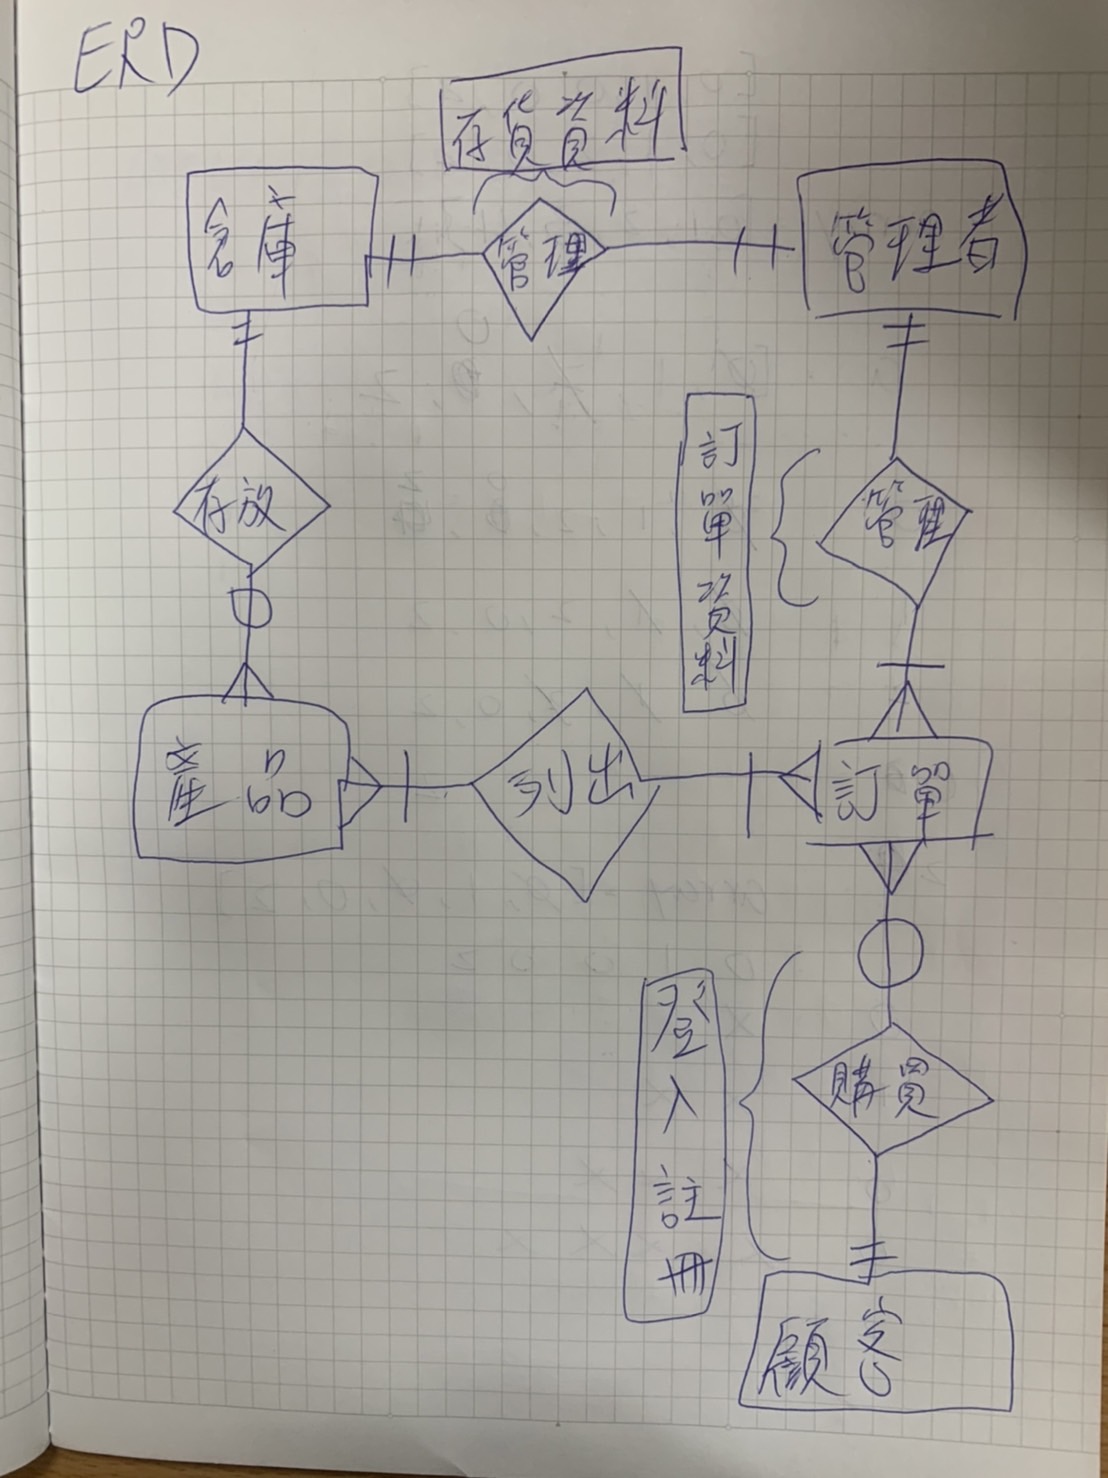 ERD
存貨資料
倉庫
管理
管理者
訂單資料
存放
管理
產品
列出
訂單
登入註冊
購買
顧客